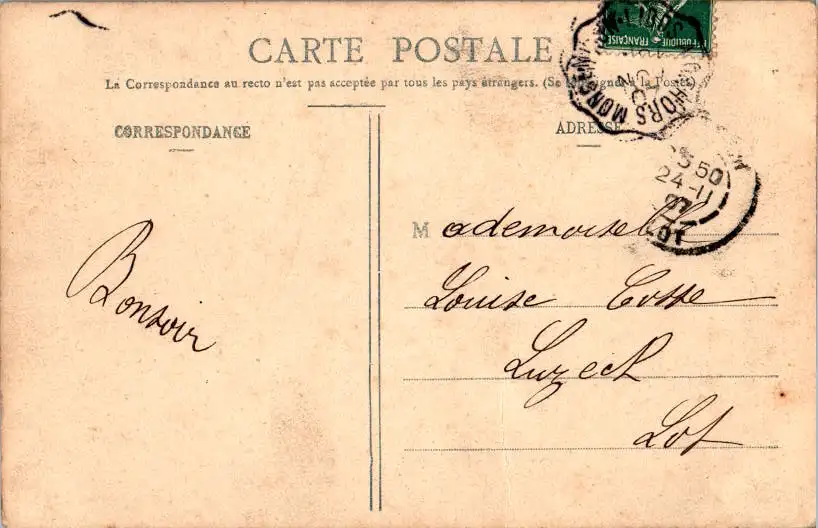 CARTE POSTALE
La Correspondance au recto n'est pas acceptée par tous les pays étrangers. (Se à la Poste
CORRESPONDANCE
ADRESSE
Bonsoir
Mademoiselle
Louise Cosse
Luzech
Lot
FRANÇAISE
24-11
LOT